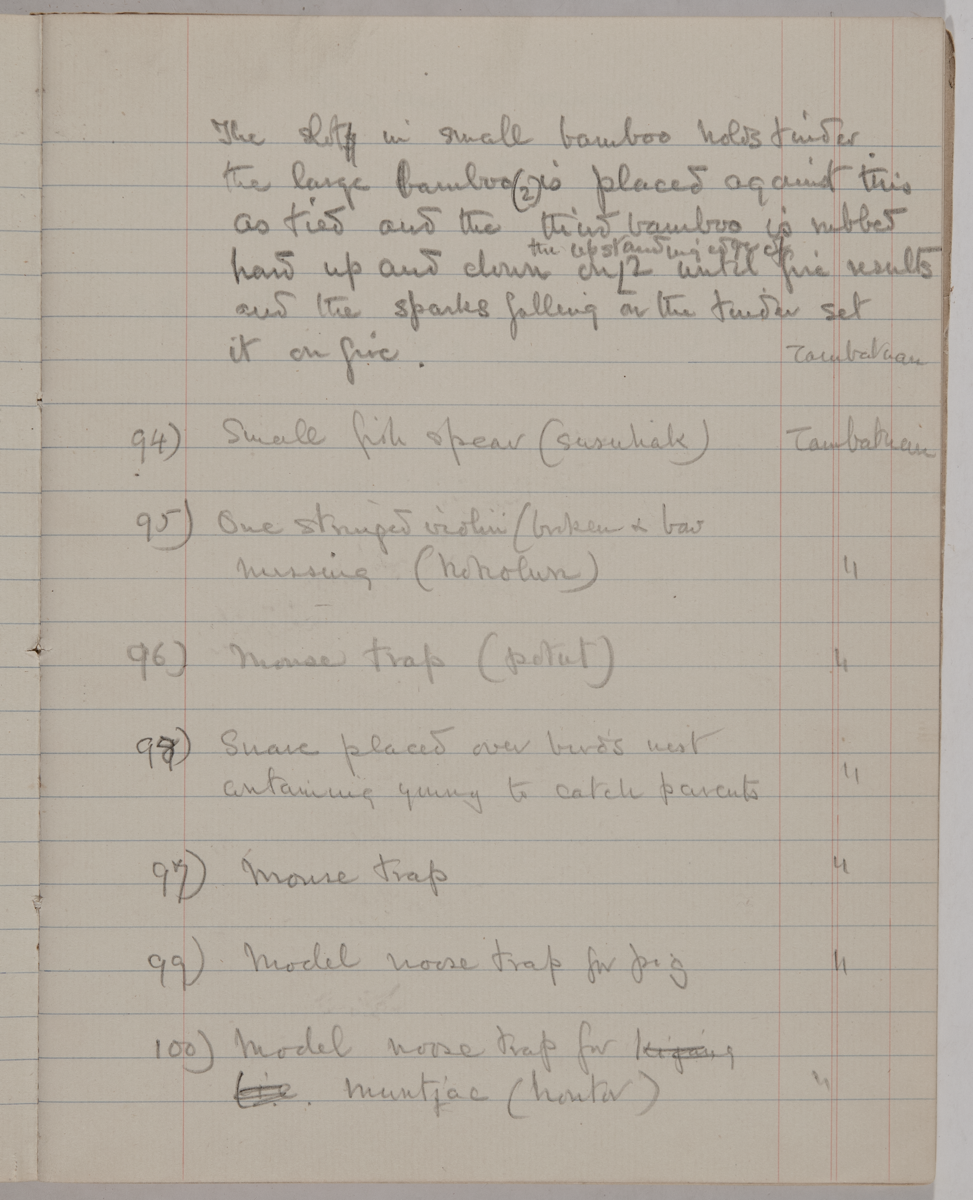 The slot in small bamboo holds tinder.
the large bamboo (2) is placed against this
as tied and the third bamboo is rubbed
the upstanding edge of
hard up and down on 2 until fire results
and the sparks falling on the tinder set
it on fire. Tambatuan
94) Small fish spear (susuhak) Tambatuan
95) One stringed violin (broken & bow
missing ( "
96) Mouse trap (potut) "
98) Snare placed over bird's nest
containing young to catch parents "
97) Mouse trap "
99) Model noose trap for pig "
100) Model noose trap for kijang
muntjac ( "